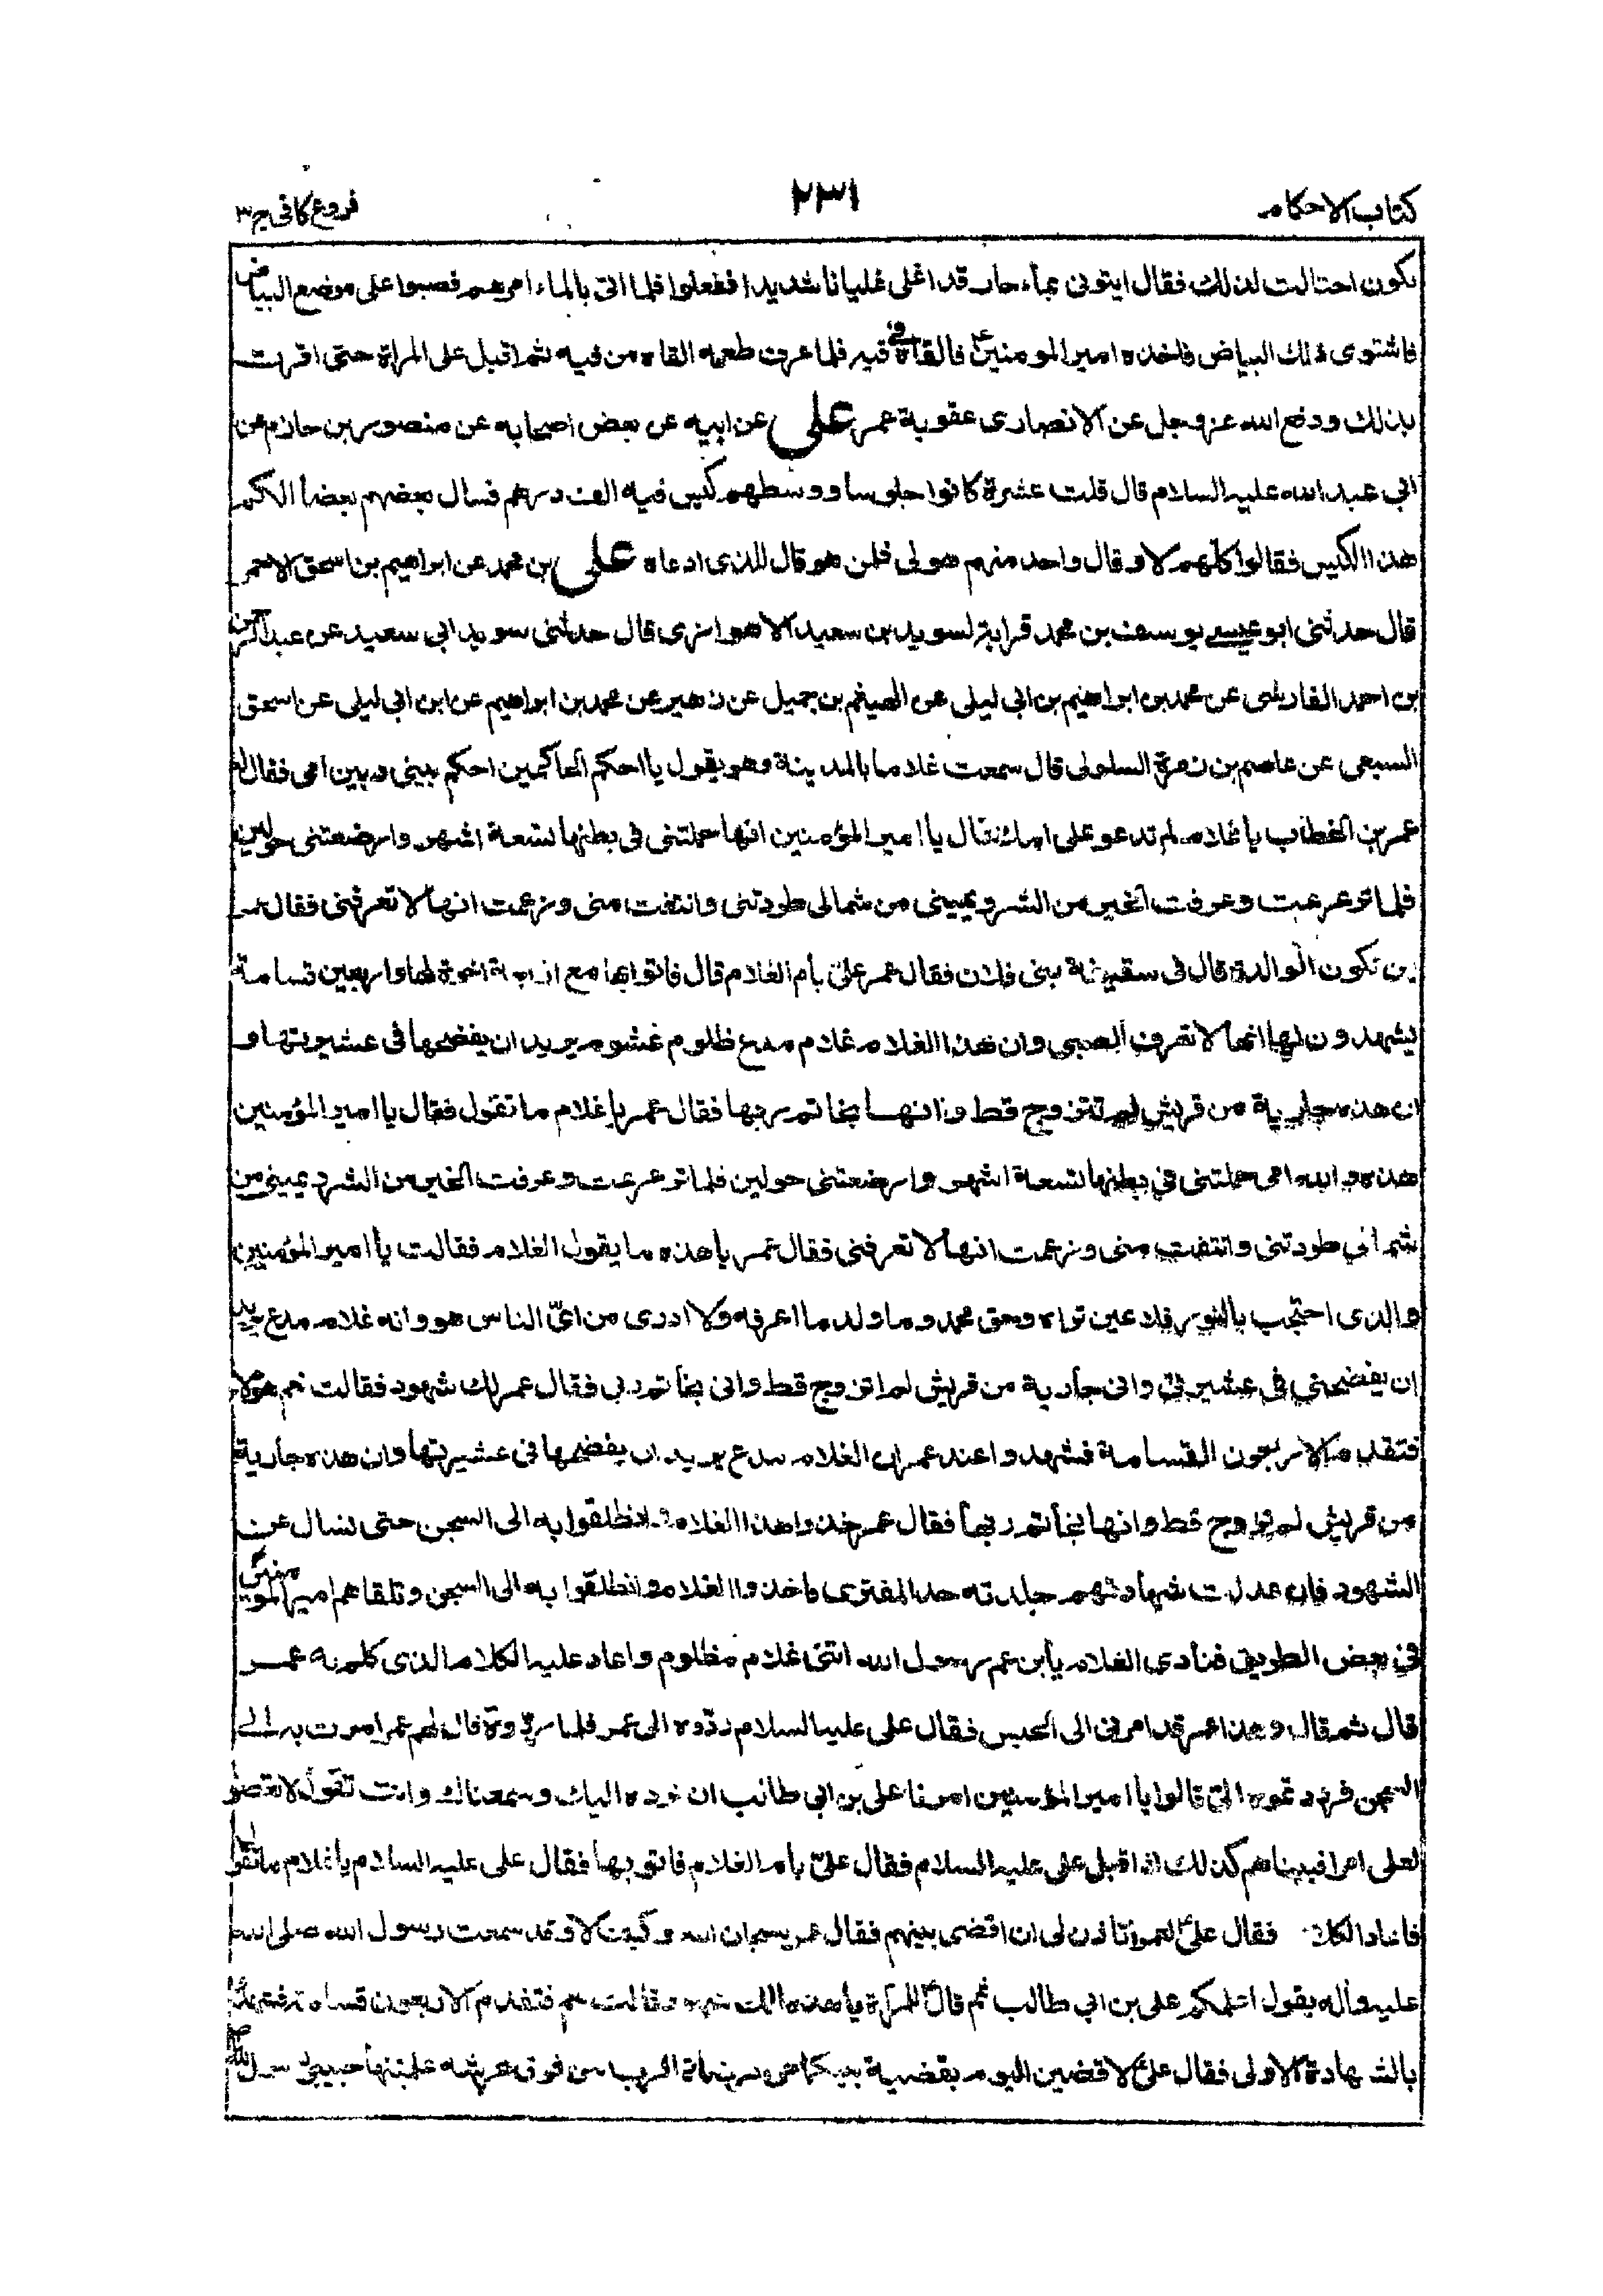 كتاب الاحكام
٢٣١
فروع كافى ج ٣
يكون احتالت لذلك فقال ايتونى بماء حار قد اغلى غليانا شديدا ففعلوا فلما اتى بالماء امرهم فصبوا على موضع البياض
فاشتوى ذلك البياض فاخذه امير المومنينؑ فالقاه فى فيه فلما عرف طعمه القاه من فيه ثم اقبل على المراة حتى اقرت
بذلك ودفع الله عز وجل عن الانصارى عقوبة عمر على عن ابيه عن بعض اصحابه عن منصور بن حازم عن
ابى عبد الله عليه السلام قال قلت عشرة كانوا جلوسا ووسطهم كيس فيه الف درهم فسال بعضهم بعضا الكم
هذا الكيس فقالوا كلهم لا وقال واحد منهم هو لى فلمن هو قال للذى ادعاه على بن محمد عن ابراهيم بن اسحق الاحمر
قال حدثنى ابو عيسى يوسف بن محمد قرابة لسويد بن سعيد الاهوازى قال حدثنى سويد ابى سعيد عن عبد الرحمن
بن احمد الفارسى عن محمد بن ابراهيم بن ابى ليلى عن الهيثم بن جميل عن زهير عن محمد بن ابراهيم عن ابن ابى ليلى عن اسحق
السبعى عن عاصم بن ضمرة السلولى قال سمعت غلاما بالمدينة وهو يقول يا احكم الحاكمين احكم بينى وبين امى فقال له
عمر بن الخطاب يا غلام لم تدعو على امك فقال يا امير المؤمنين انها حملتنى فى بطنها تسعة اشهر وارضعتنى حولين
فلما ترعرعت وعرفت الخير من الشر ويمينى من شمالى طردتنى وانتفت منى وزعمت انها لا تعرفنى فقال عمر
اين تكون الوالدة قال فى سقيفة بنى فلان فقال عمر علىّ بام الغلام قال فاتوا بها مع اربعة اخوة لها واربعين قسامة
يشهدون لها انها لا تعرف الصبى وان هذا الغلام غلام مدع ظلوم غشوم يريد ان يفضحها فى عشيرتها و
ان هذه جارية من قريش لم تتزوج قط وانها بخاتم ربها فقال عمر يا غلام ما تقول فقال يا امير المؤمنين
هذه والله امى حملتنى فى بطنها تسعة اشهر وارضعتنى حولين فلما ترعرعت وعرفت الخير من الشر ويمينى من
شمالى طردتنى وانتفت منى وزعمت انها لا تعرفنى فقال عمر يا هذه ما يقول الغلام فقالت يا امير المؤمنين
والذى احتجب بالنور فلا عين تراه وحق محمد وما ولد ما اعرفه ولا ادرى من اىّ الناس هو وانه غلام مدع يريد
ان يفضحنى فى عشيرتى وانى جارية من قريش لم اتزوج قط وانى بخاتم ربى فقال عمر لك شهود فقالت نعم هؤلاء
فتقدم الاربعون القسامة فشهدوا عند عمر ان الغلام مدع يريد ان يفضحها فى عشيرتها وان هذه جارية
من قريش لم تزوج قط وانها بخاتم ربها فقال عمر خذوا هذا الغلام وانطلقوا به الى السجن حتى نسال عن
الشهود فان عدلت شهادتهم جلدته حد المفترى فاخذوا الغلام وانطلقوا به الى السجن وتلقاهم امير المؤمنينؑ
فى بعض الطريق فنادى الغلام يا بن عم رسول الله اننى غلام مظلوم واعاد عليه الكلام الذى كلم به عمر
قال ثم قال وهذا عمر قد امر بى الى الحبس فقال على عليه السلام ردّوه الى عمر فلما ردوه قال لهم عمر امرت به الى
السجن فرددتموه الىّ قالوا يا امير المؤمنين امرنا على بن ابى طالب ان نرده اليك وسمعناك وانت تقول لا تعصوا
لعلى امرا فبينا هم كذلك اذ اقبل على عليه السلام فقال علىّ بام الغلام فاتوا بها فقال على عليه السلام يا غلام ما تقول
فاعاد الكلام فقال علىؑ لعمر اتاذن لى ان اقضى بينهم فقال عمر سبحان الله وكيف لا وقد سمعت رسول الله صلى الله
عليه وآله يقول اعلمكم على بن ابى طالب ثم قال للمرأة يا هذه الك شهود قالت نعم فتقدم الاربعون قسامة فشهدوا
بالشهادة الاولى فقال علىؑ لاقضين اليوم بقضية بينكما هى مرضاة الرب من فوق عرشه علمنيها حبيبى رسول الله